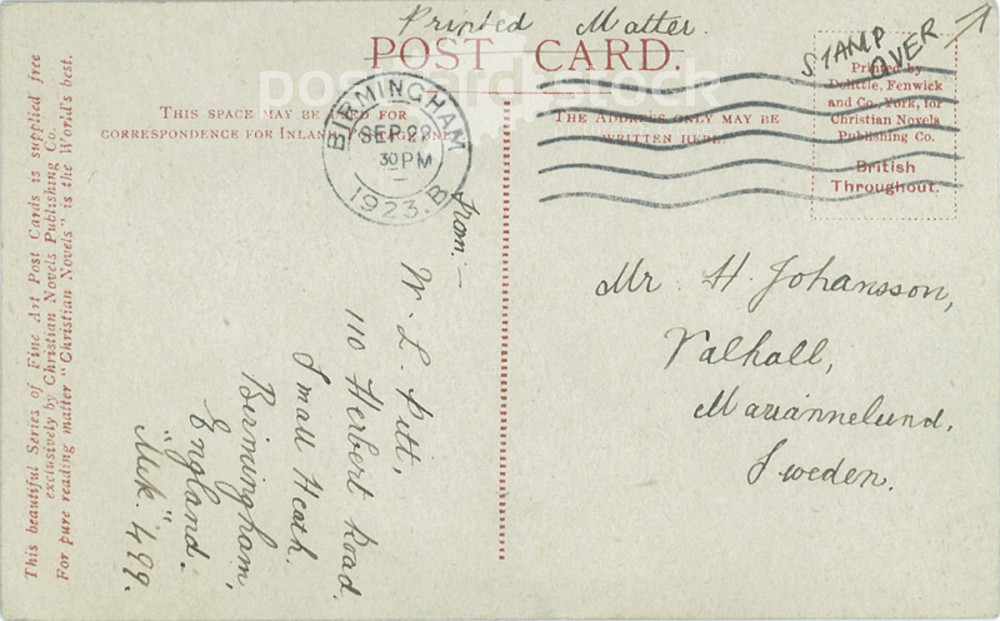 Printed Matter.
POST CARD.
STAMP
OVER
THIS SPACE MAY BE USED FOR
CORRESPONDENCE FOR INLAND POSTAGE ONLY.
THE ADDRESS ONLY MAY BE
WRITTEN HERE.
Printed by
Delittle, Fenwick
and Co., York, for
Christian Novels
Publishing Co.
British
Throughout.
BIRMINGHAM
SEP 29
30 PM
1923. B
This beautiful Series of Fine Art Post Cards is supplied free
exclusively by Christian Novels Publishing Co.
For pure reading matter "Christian Novels" is the World's best.
From:—
W. L. Pitt,
110 Herbert Road,
Small Heath.
Birmingham,
England.
499.
Mr. H. Johansson,
Valhall,
Mariannelund,
Sweden.